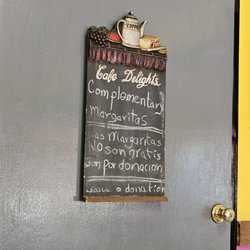 COFFEE
Cafe Delights
Complementary
Margaritas
Las Margaritas
No son gratis
son por donacion
Leave a donation